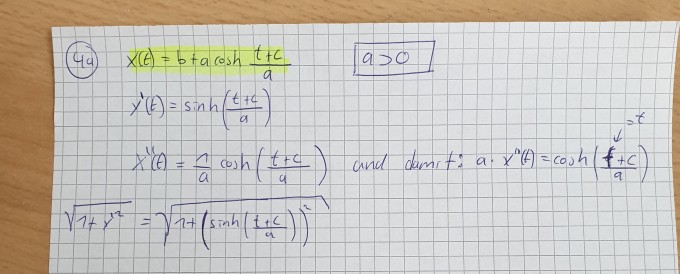 4a x(t) = b + a cosh (t+c)/a a > 0
x'(t) = sinh((t+c)/a)
= t
↓
x''(t) = 1/a cosh((t+c)/a) and damit: a · x''(t) = cosh((t+c)/a)
√(1+x'²) = √(1+(sinh((t+c)/a))²)